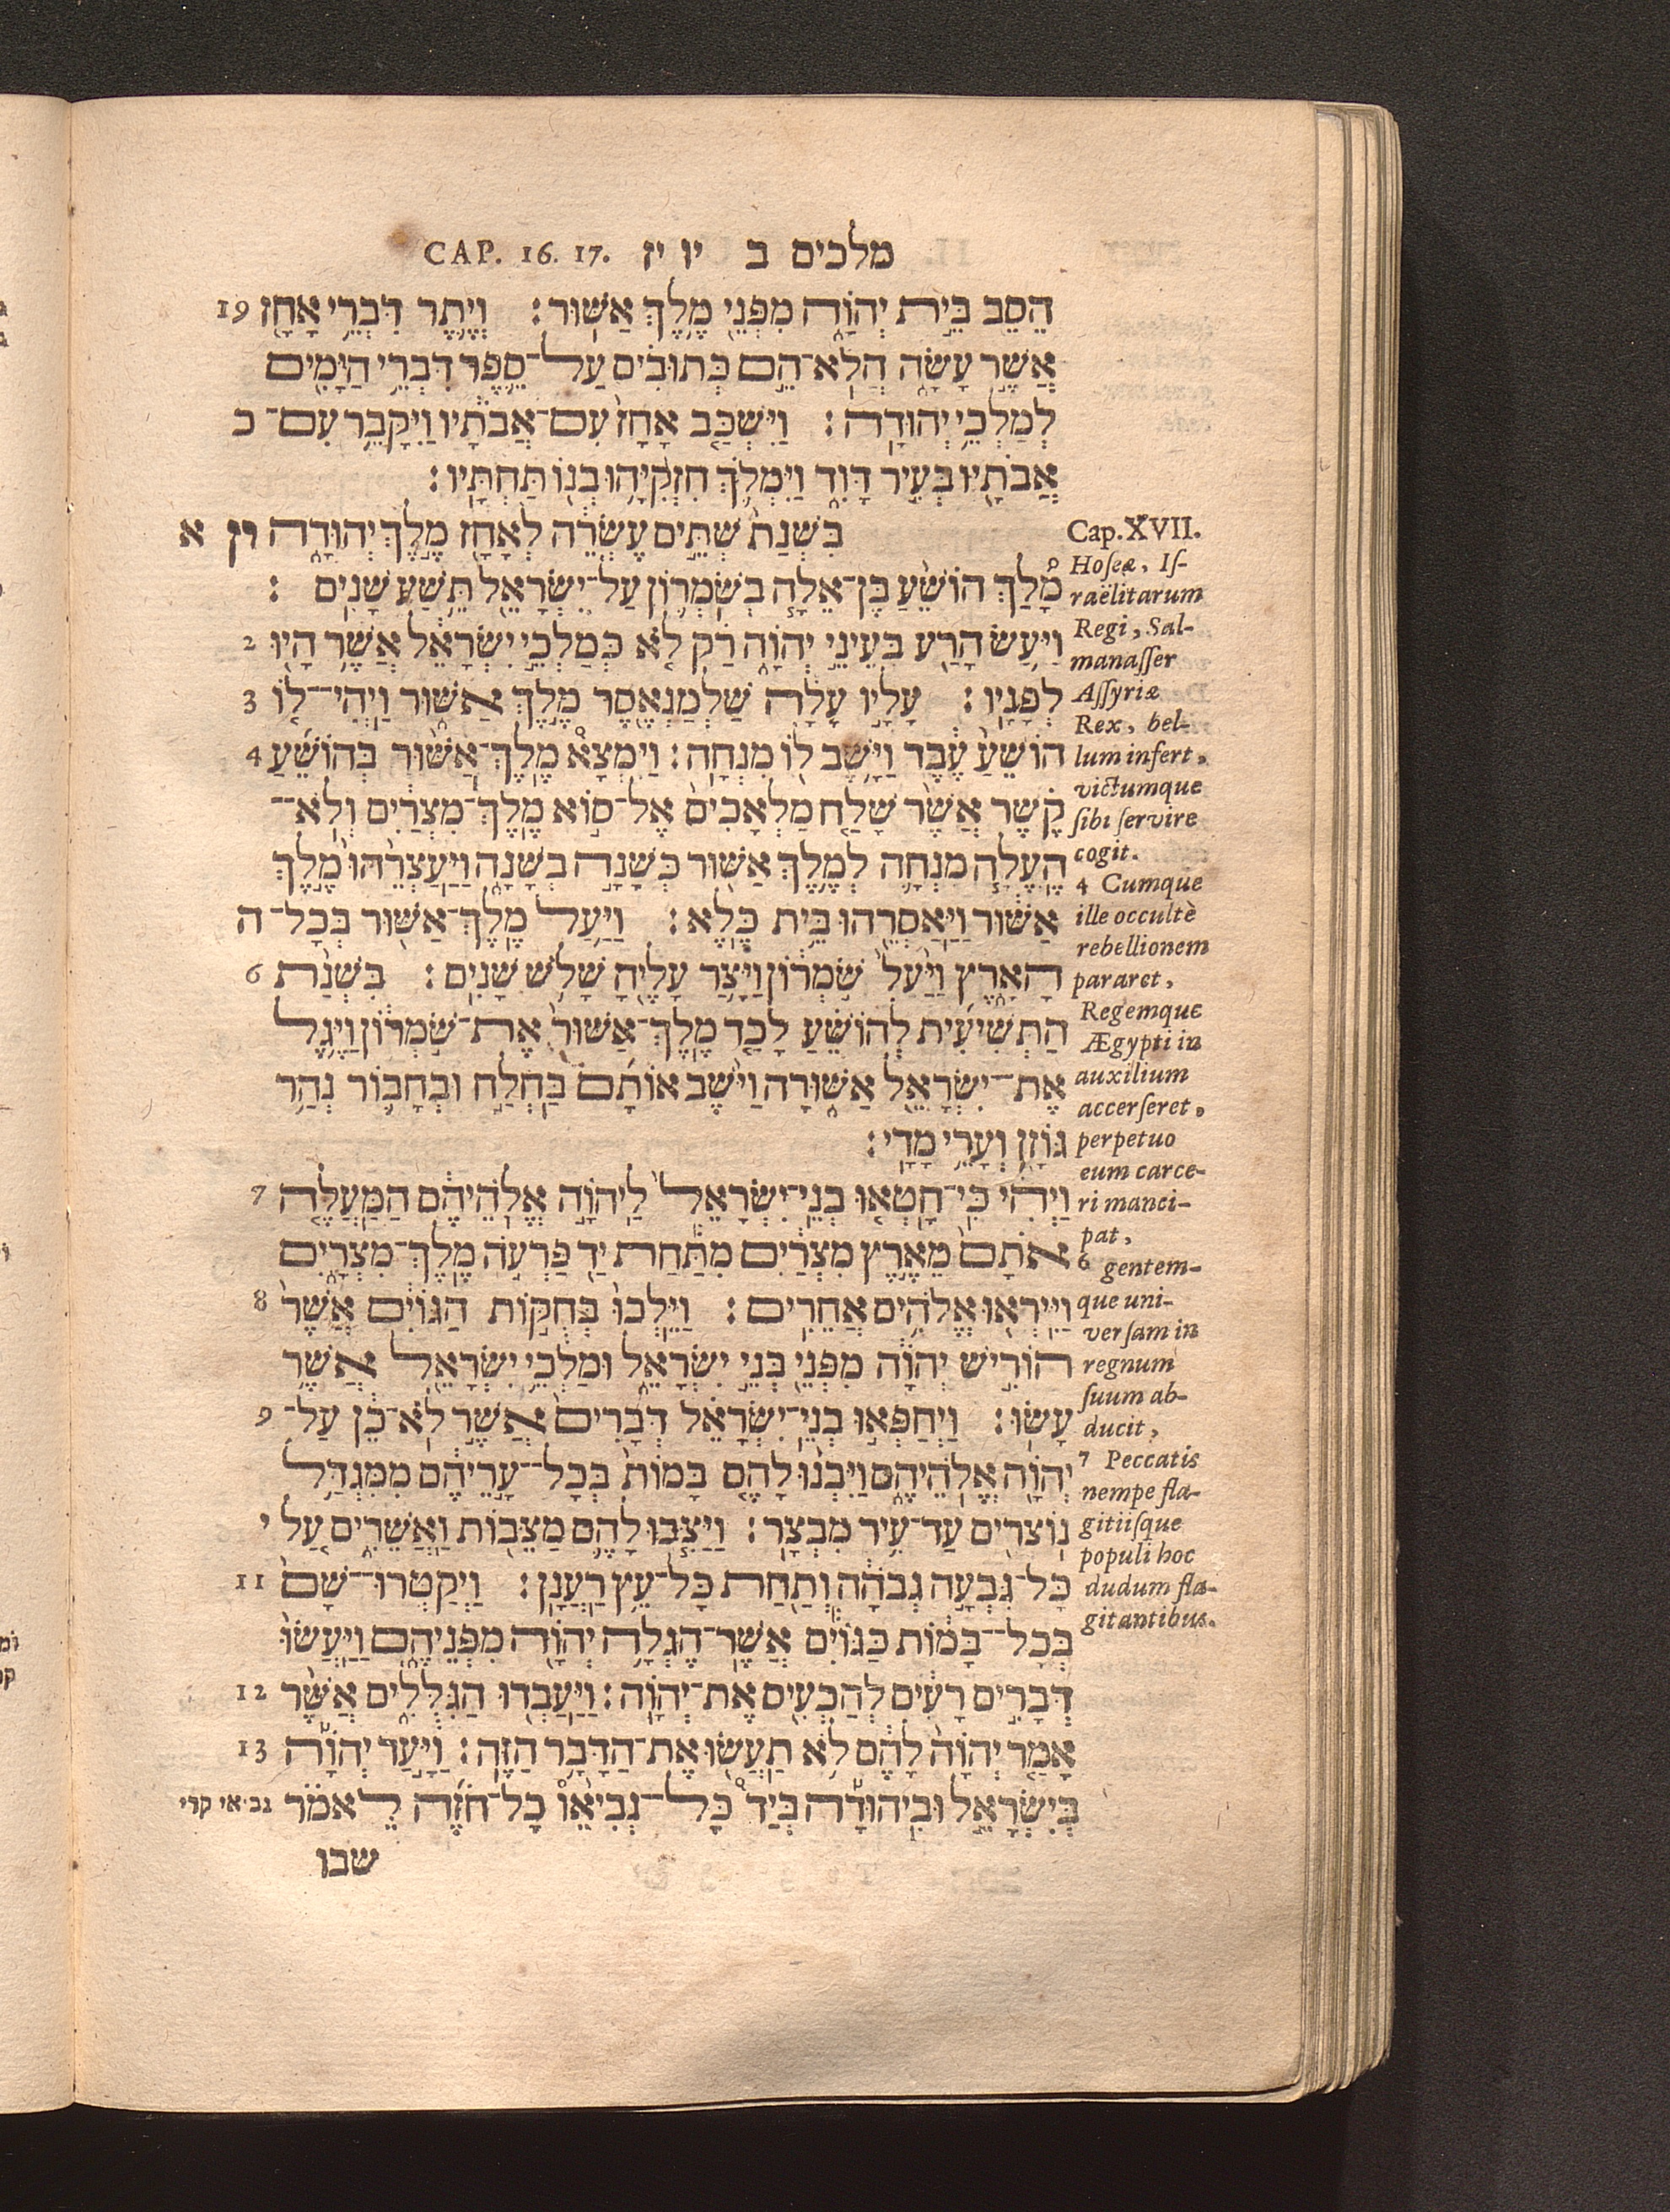 מלכים ב יו יז CAP. 16. 17.
הֵסֵב בֵּית יְהוָה מִפְּנֵי מֶלֶךְ אַשּׁוּר: וְיֶתֶר דִּבְרֵי אָחָז 19
אֲשֶׁר עָשָׂה הֲלֹא־הֵם כְּתוּבִים עַל־סֵפֶר דִּבְרֵי הַיָּמִים
לְמַלְכֵי יְהוּדָה: וַיִּשְׁכַּב אָחָז עִם־אֲבֹתָיו וַיִּקָּבֵר עִם־ כ
אֲבֹתָיו בְּעִיר דָּוִד וַיִּמְלֹךְ חִזְקִיָּהוּ בְנוֹ תַּחְתָּיו:
בִּשְׁנַת שְׁתֵּים עֶשְׂרֵה לְאָחָז מֶלֶךְ יְהוּדָה יז א
מָלַךְ הוֹשֵׁעַ בֶּן־אֵלָה בְשֹׁמְרוֹן עַל־יִשְׂרָאֵל תֵּשַׁע שָׁנִים :
וַיַּעַשׂ הָרַע בְּעֵינֵי יְהוָה רַק לֹא כְּמַלְכֵי יִשְׂרָאֵל אֲשֶׁר הָיוּ 2
לְפָנָיו: עָלָיו עָלָה שַׁלְמַנְאֶסֶר מֶלֶךְ אַשּׁוּר וַיְהִי־לוֹ 3
הוֹשֵׁעַ עֶבֶד וַיָּשֶׁב לוֹ מִנְחָה: וַיִּמְצָא מֶלֶךְ־אַשּׁוּר בְּהוֹשֵׁעַ 4
קֶשֶׁר אֲשֶׁר שָׁלַח מַלְאָכִים אֶל־סוֹא מֶלֶךְ־מִצְרַיִם וְלֹא־
הֶעֱלָה מִנְחָה לְמֶלֶךְ אַשּׁוּר כְּשָׁנָה בְשָׁנָה וַיַּעַצְרֵהוּ מֶלֶךְ
אַשּׁוּר וַיַּאַסְרֵהוּ בֵּית כֶּלֶא: וַיַּעַל מֶלֶךְ־אַשּׁוּר בְּכָל־ ה
הָאָרֶץ וַיַּעַל שֹׁמְרוֹן וַיָּצַר עָלֶיהָ שָׁלֹשׁ שָׁנִים: בִּשְׁנַת 6
הַתְּשִׁיעִית לְהוֹשֵׁעַ לָכַד מֶלֶךְ־אַשּׁוּר אֶת־שֹׁמְרוֹן וַיֶּגֶל
אֶת־יִשְׂרָאֵל אַשּׁוּרָה וַיֹּשֶׁב אוֹתָם בַּחְלַח וּבְחָבוֹר נְהַר
גּוֹזָן וְעָרֵי מָדָי:
וַיְהִי כִּי־חָטְאוּ בְנֵי־יִשְׂרָאֵל לַיהוָה אֱלֹהֵיהֶם הַמַּעֲלֶה 7
אֹתָם מֵאֶרֶץ מִצְרַיִם מִתַּחַת יַד פַּרְעֹה מֶלֶךְ־מִצְרָיִם
וַיִּירְאוּ אֱלֹהִים אֲחֵרִים: וַיֵּלְכוּ בְּחֻקּוֹת הַגּוֹיִם אֲשֶׁר 8
הוֹרִישׁ יְהוָה מִפְּנֵי בְּנֵי יִשְׂרָאֵל וּמַלְכֵי יִשְׂרָאֵל אֲשֶׁר
עָשׂוּ: וַיְחַפְּאוּ בְנֵי־יִשְׂרָאֵל דְּבָרִים אֲשֶׁר לֹא־כֵן עַל־ 9
יְהוָה אֱלֹהֵיהֶם וַיִּבְנוּ לָהֶם בָּמוֹת בְּכָל־עָרֵיהֶם מִמִּגְדַּל
נוֹצְרִים עַד־עִיר מִבְצָר: וַיַּצִּבוּ לָהֶם מַצֵּבוֹת וַאֲשֵׁרִים עַל י
כָּל־גִּבְעָה גְבֹהָה וְתַחַת כָּל־עֵץ רַעֲנָן: וַיְקַטְּרוּ־שָׁם 11
בְּכָל־בָּמוֹת כַּגּוֹיִם אֲשֶׁר־הֶגְלָה יְהוָה מִפְּנֵיהֶם וַיַּעֲשׂוּ
דְּבָרִים רָעִים לְהַכְעִים אֶת־יְהוָה: וַיַּעַבְדוּ הַגִּלֻּלִים אֲשֶׁר 12
אָמַר יְהוָה לָהֶם לֹא תַעֲשׂוּ אֶת־הַדָּבָר הַזֶּה: וַיָּעַד יְהוָה 13
בְּיִשְׂרָאֵל וּבִיהוּדָה בְּיַד כָּל־נְבִיאֵו כָל־חֹזֶה לֵאמֹר נביאי קרי
שבו
Cap. XVII.
Hoseæ, Is-
raëlitarum
Regi, Sal-
manasser
Assyriæ
Rex, bel-
lum infert,
victumque
sibi servire
cogit.
4 Cumque
ille occultè
rebellionem
pararet,
Regemque
Ægypti in
auxilium
accerseret,
perpetuo
eum carce-
ri manci-
pat,
6 gentem-
que uni-
versam in
regnum
suum ab-
ducit,
7 Peccatis
nempe fla-
gitiisque
populi hoc
dudum fla-
gitantibus.